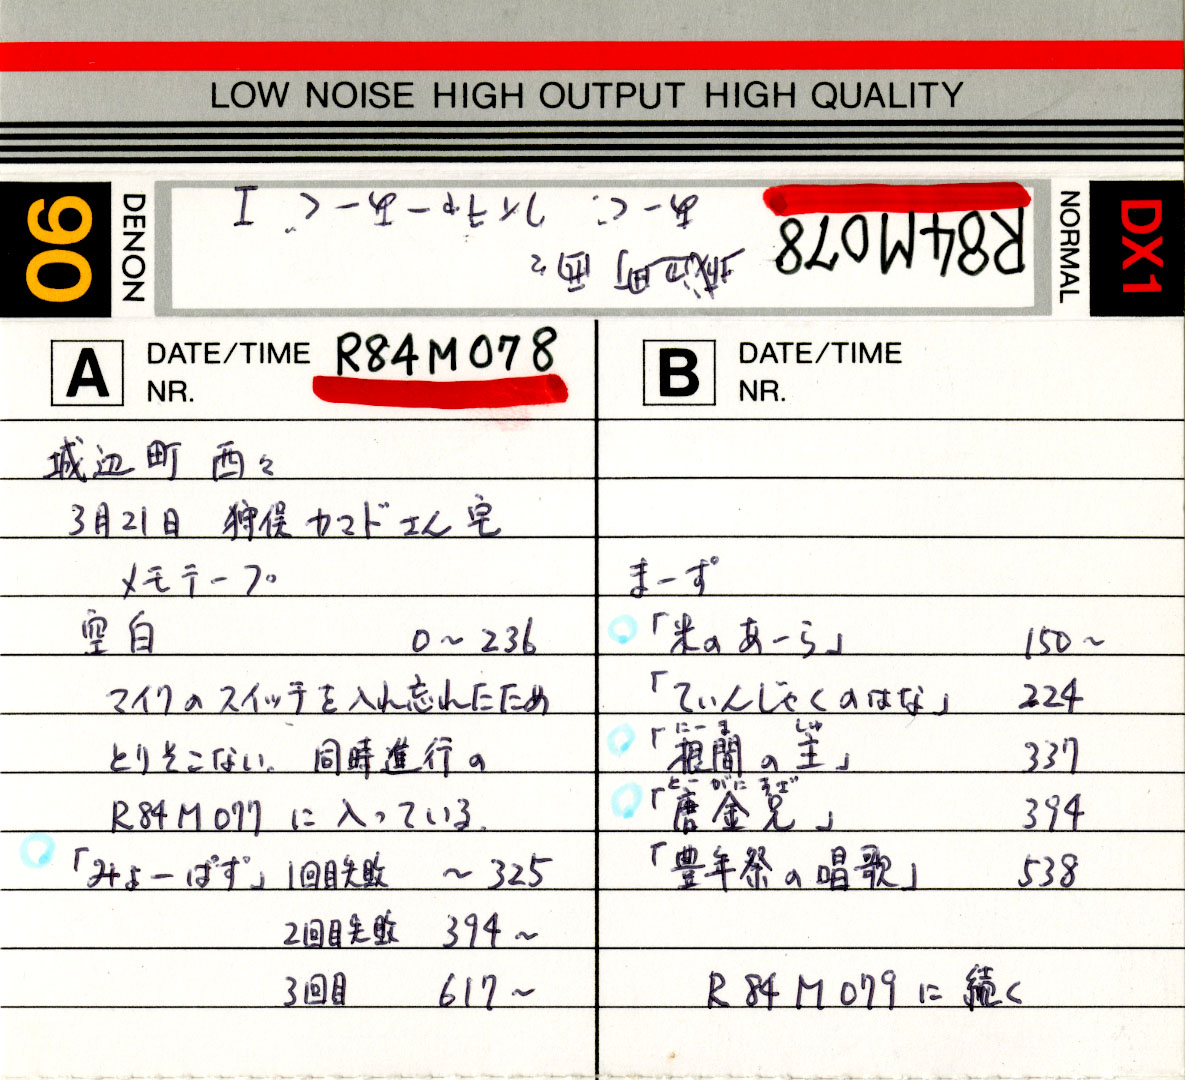 LOW NOISE HIGH OUTPUT HIGH QUALITY
90
DENON
R84M078
城辺町 西々
NORMAL
DX1
A DATE/TIME R84M078
NR.
城辺町 西々
3月21日 狩俣カマドさん宅
メモテープ
空白 0～236
マイクのスイッチを入れ忘れたため
とりそこない. 同時進行の
R84M077に入っている.
「みょーばず」1回目失敗 ～325
2回目失敗 394～
3回目 617～
B DATE/TIME
NR.
まーず
「米のあーら」 150～
「てぃんじゃくのはな」 224
にーま しゅ
「根間の主」 337
とーがに すざ
「唐金兄」 394
「豊年祭の唱歌」 538
R84M079に続く